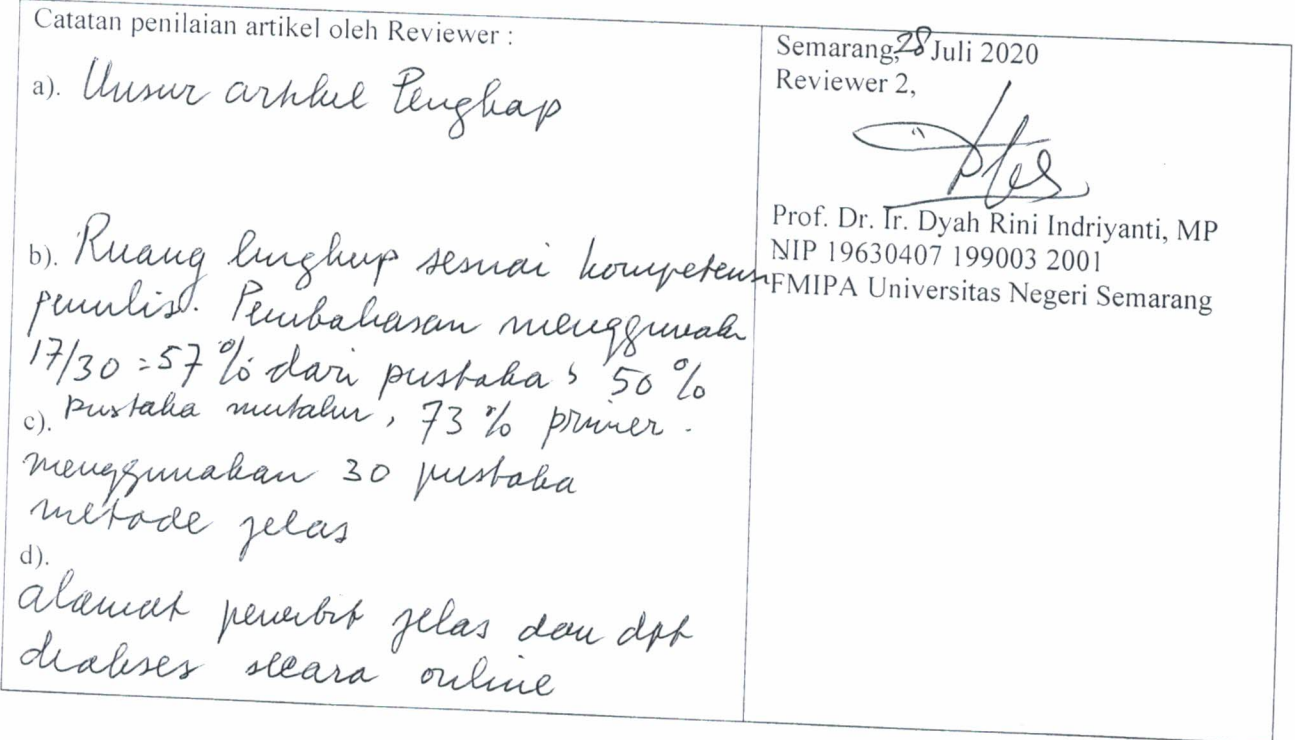 Catatan penilaian artikel oleh Reviewer :
a). Unsur artikel lengkap
b). Ruang lingkup sesuai kompetensi
penulis. Pembahasan menggunakan
17/30 = 57 % dari pustaka, 50 %
pustaka mutahir, 73 % primer.
c).
menggunakan 30 pustaka
metode jelas
d).
alamat penerbit jelas dan dpt
diakses secara online
Semarang, 28 Juli 2020
Reviewer 2,
Prof. Dr. Ir. Dyah Rini Indriyanti, MP
NIP 19630407 199003 2001
FMIPA Universitas Negeri Semarang